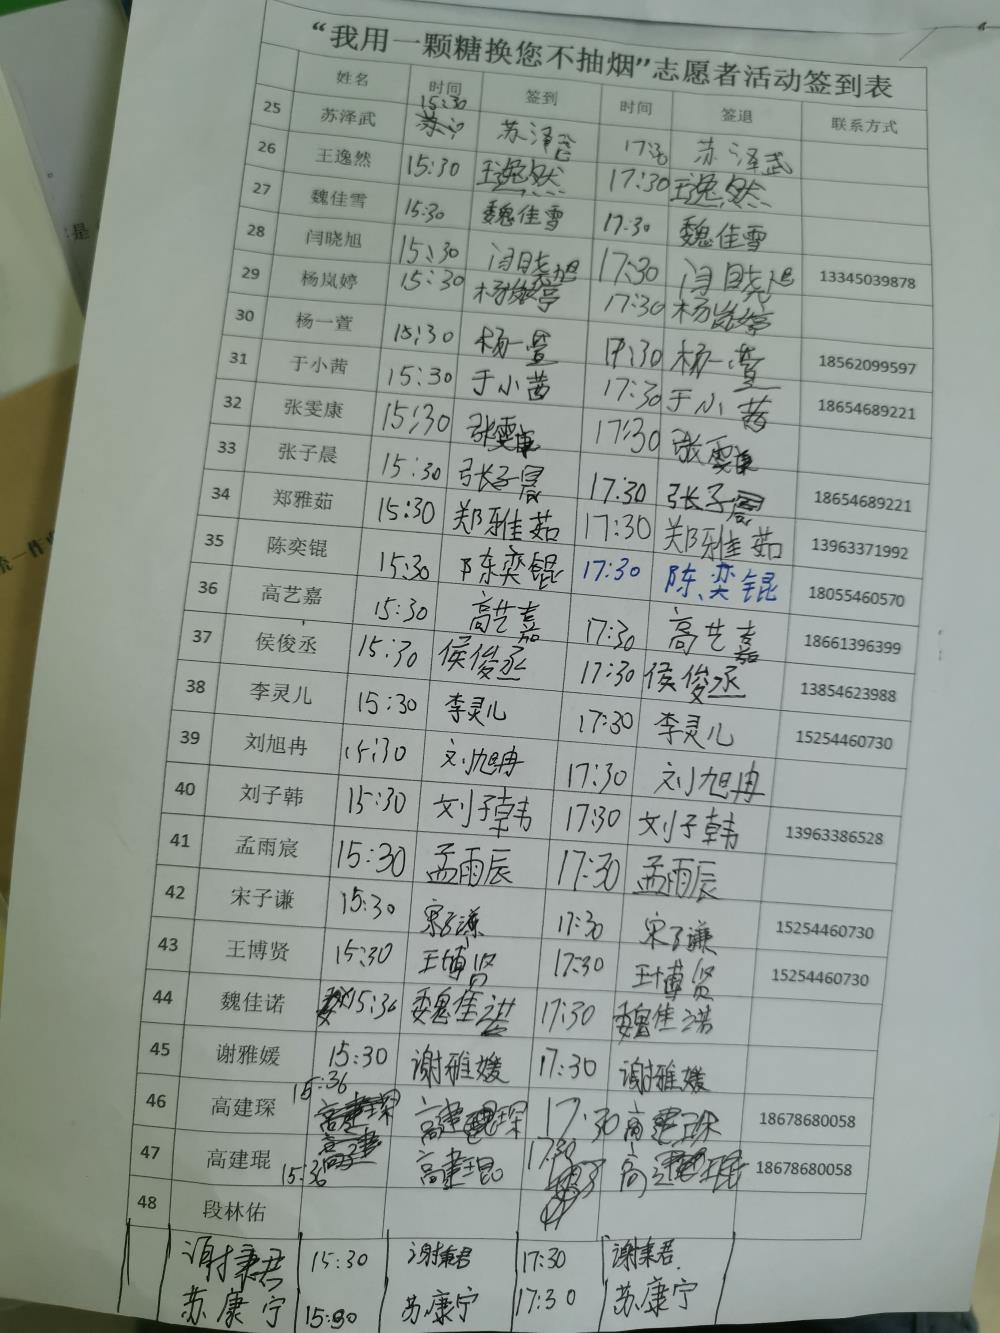 “我用一颗糖换您不抽烟”志愿者活动签到表
姓名 时间 签到 时间 签退 联系方式
25 苏泽武 15:30 苏泽武 17:30 苏泽武
26 王逸然 15:30 王逸然 17:30 王逸然
27 魏佳雪 15:30 魏佳雪 17:30 魏佳雪
28 闫晓旭 15:30 闫晓旭 17:30 闫晓旭 13345039878
29 杨岚婷 15:30 杨岚婷 17:30 杨岚婷
30 杨一萱 15:30 杨一萱 17:30 杨一萱 18562099597
31 于小茜 15:30 于小茜 17:30 于小茜 18654689221
32 张雯康 15:30 张雯康 17:30 张雯康
33 张子晨 15:30 张子晨 17:30 张子晨 18654689221
34 郑雅茹 15:30 郑雅茹 17:30 郑雅茹 13963371992
35 陈奕锟 15:30 陈奕锟 17:30 陈奕锟 18055460570
36 高艺嘉 15:30 高艺嘉 17:30 高艺嘉 18661396399
37 侯俊丞 15:30 侯俊丞 17:30 侯俊丞 13854623988
38 李灵儿 15:30 李灵儿 17:30 李灵儿 15254460730
39 刘旭冉 15:30 刘旭冉 17:30 刘旭冉
40 刘子韩 15:30 刘子韩 17:30 刘子韩 13963386528
41 孟雨宸 15:30 孟雨辰 17:30 孟雨辰
42 宋子谦 15:30 宋子谦 17:30 宋子谦 15254460730
43 王博贤 15:30 王博贤 17:30 王博贤 15254460730
44 魏佳诺 15:36 魏佳诺 17:30 魏佳诺
45 谢雅媛 15:30 谢雅媛 17:30 谢雅媛
46 高建琛 15:36 高建琛 17:30 高建琛 18678680058
47 高建琨 15:36 高建琨 17:30 高建琨 18678680058
48 段林佑
谢秉君 15:30 谢秉君 17:30 谢秉君
苏康宁 15:30 苏康宁 17:30 苏康宁